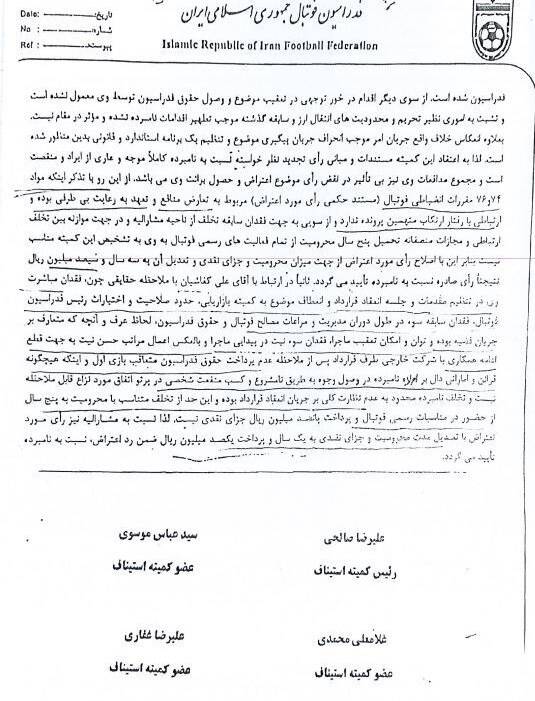 Date:
تاریخ:
No :
شماره:
Ref :
پیوست:
فدراسیون فوتبال جمهوری اسلامی ایران
Islamic Republic of Iran Football Federation
فدراسیون شده است. از سوی دیگر اقدام در خور توجهی در تعقیب موضوع و وصول حقوق فدراسیون توسط وی معمول نشده است
و تشبث به اموری نظیر تحریم و محدودیت های انتقال ارز و سابقه گذشته موجب تطهیر اقدامات نامبرده نشده و مؤثر در مقام نیست.
بعلاوه انعکاس خلاف واقع جریان امر موجب انحراف جریان پیگیری موضوع و تنظیم یک برنامه استاندارد و قانونی بدین منظور شده
است. لذا به اعتقاد این کمیته مستندات و مبانی رأی تجدید نظر خواسته نسبت به نامبرده کاملاً موجه و عاری از ایراد و منقصت
است و مجموع مدافعات وی نیز بی تأثیر در نقض رأی موضوع اعتراض و حصول برائت وی می باشد. از این رو با تذکر اینکه مواد
۷۴و۷۶ مقررات انضباطی فوتبال (مستند حکمی رأی مورد اعتراض) مربوط به تعارض منافع و تعهد به رعایت بی طرفی بوده و
ارتباطی با رفتار ارتکاب متهمین پرونده ندارد و از سویی به جهت فقدان سابقه تخلف از ناحیه مشارالیه و در جهت موازنه بین تخلف
ارتباطی و مجازات منصفانه تحمیل پنج سال محرومیت از تمام فعالیت های رسمی فوتبال به وی به تشخیص این کمیته متناسب
نیست بنابر این با اصلاح رأی مورد اعتراض از جهت میزان محرومیت و جزای نقدی و تعدیل آن به سه سال و سیصد میلیون ریال
نتیجتاً رأی صادره نسبت به نامبرده تأیید می گردد. ثانیاً در ارتباط با آقای علی کفاشیان با ملاحظه حقایقی چون، فقدان مباشرت
وی در تنظیم مقدمات و جلسه انعقاد قرارداد و انعطاف موضوع به کمیته بازاریابی، حدود صلاحیت و اختیارات رئیس فدراسیون
فوتبال، فقدان سابقه سوء در طول دوران مدیریت و مراعات مصالح فوتبال و حقوق فدراسیون، لحاظ عرف و آنچه که متعارف بر
جریان قضیه بوده و توان و امکان تعقیب ماجرا، فقدان سوء نیت در پیدایی ماجرا و بالعکس اعمال مراتب حسن نیت به جهت قطع
ادامه همکاری با شرکت خارجی طرف قرارداد پس از ملاحظه عدم پرداخت حقوق فدراسیون متعاقب بازی اول و اینکه هیچگونه
قرائن و اماراتی دال بر اراده نامبرده در وصول وجوه به طریق نامشروع و کسب منفعت شخصی در پرتو اتفاق مورد نزاع قابل ملاحظه
نیست و تخلف نامبرده محدود به عدم نظارت کلی بر جریان انعقاد قرارداد بوده و این حد از تخلف متناسب با محرومیت به پنج سال
از حضور در مناسبات رسمی فوتبال و پرداخت پانصد میلیون ریال جزای نقدی نیست. لذا نسبت به مشارالیه نیز رأی مورد
اعتراض با تعدیل مدت محرومیت و جزای نقدی به یک سال و پرداخت یکصد میلیون ریال ضمن رد اعتراض، نسبت به نامبرده
تأیید می گردد.
علیرضا صالحی
سید عباس موسوی
رئیس کمیته استیناف
عضو کمیته استیناف
غلامعلی محمدی
علیرضا غفاری
عضو کمیته استیناف
عضو کمیته استیناف